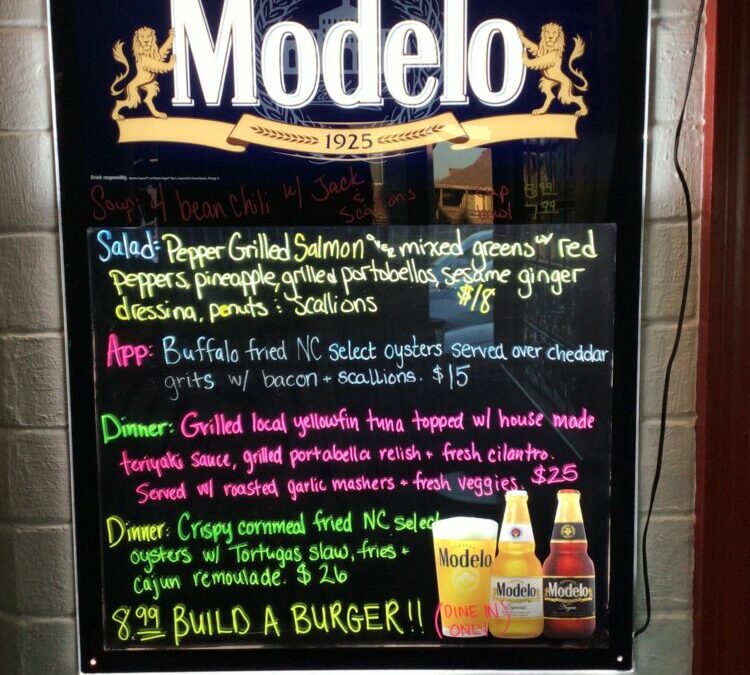 Modelo
1925
Drink responsibly.
Soup: 4 bean chili w/ Jack
& Scallions
cup 5.99
bowl 7.99
Salad: Pepper Grilled Salmon over mixed greens w/ red
peppers, pineapple, grilled portabellas, sesame ginger
dressing, penuts : scallions $18
App: Buffalo fried NC select oysters served over cheddar
grits w/ bacon + scallions. $15
Dinner: Grilled local yellowfin tuna topped w/ house made
teriyaki sauce, grilled portabella relish + fresh cilantro.
Served w/ roasted garlic mashers + fresh veggies. $25
Dinner: Crispy cornmeal fried NC select
oysters w/ Tortugas slaw, fries +
cajun remoulade. $26
8.99 BUILD A BURGER!! (DINE IN
ONLY)
Modelo
Modelo
Especial
Modelo
Negra